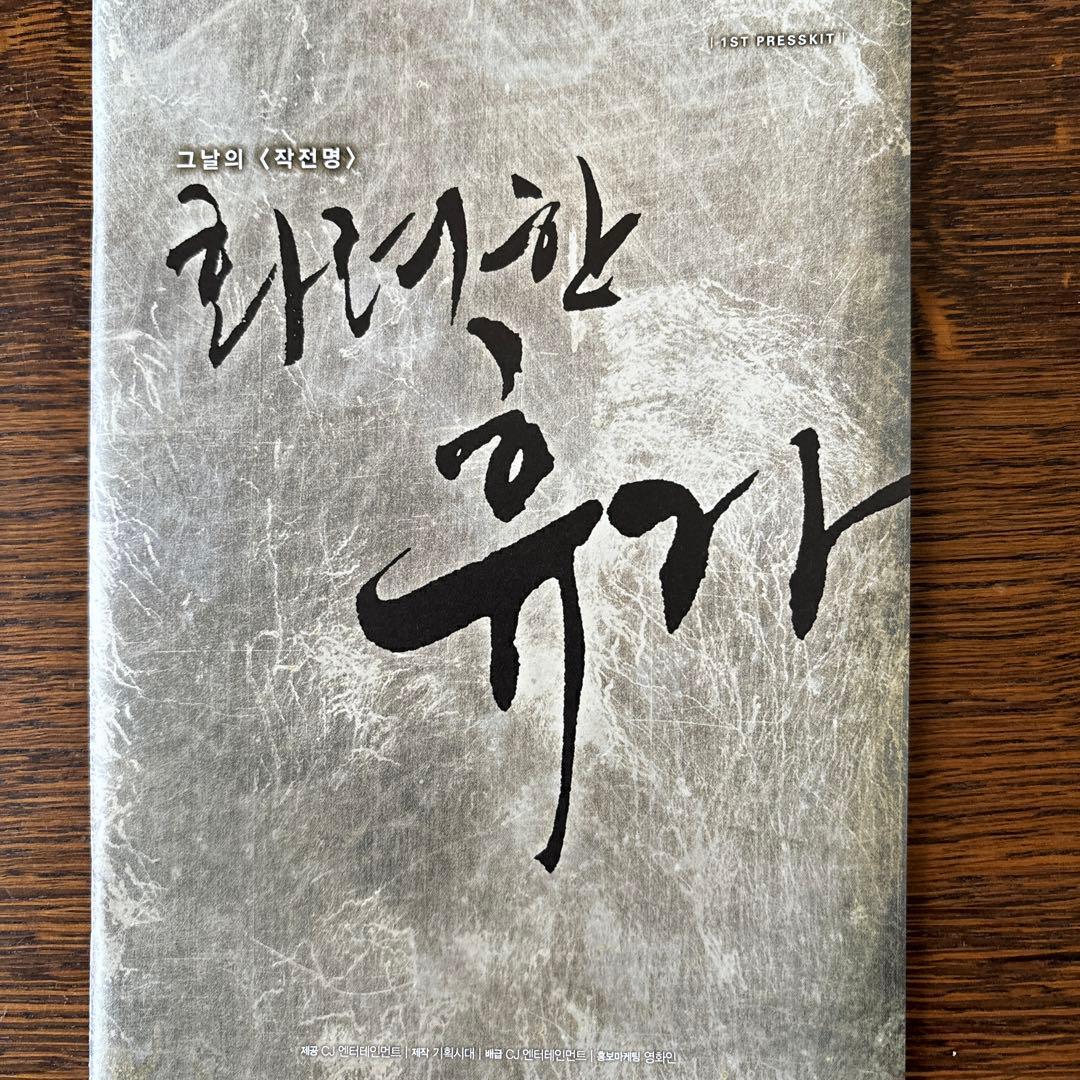 | 1ST PRESSKIT |
그날의 〈작전명〉
화려한
휴가
제공 CJ 엔터테인먼트 | 제작 기획시대 | 배급 CJ 엔터테인먼트 | 홍보마케팅 영화인